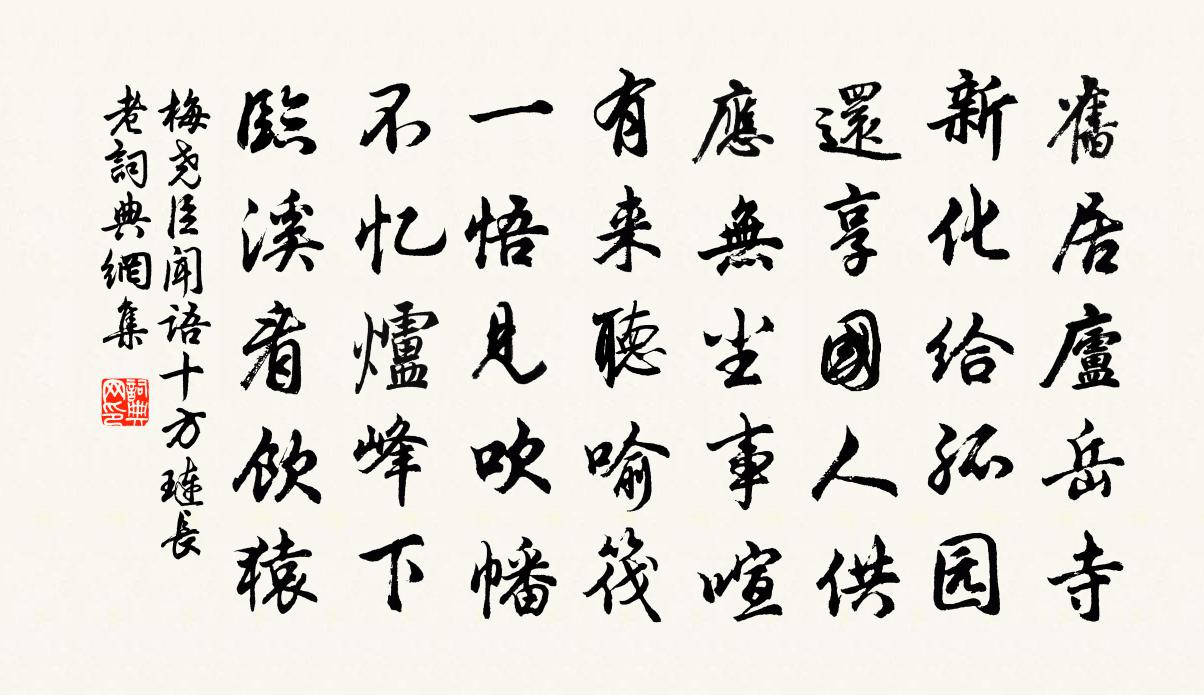 舊居廬岳寺
新化给孤园
還享國人供
應無坐事喧
有来聽喻筏
一悟見吹幡
不忆爐峰下
臨溪看飲猿
梅尧臣闻语十方琏長
老詞典網集
詞典
网印